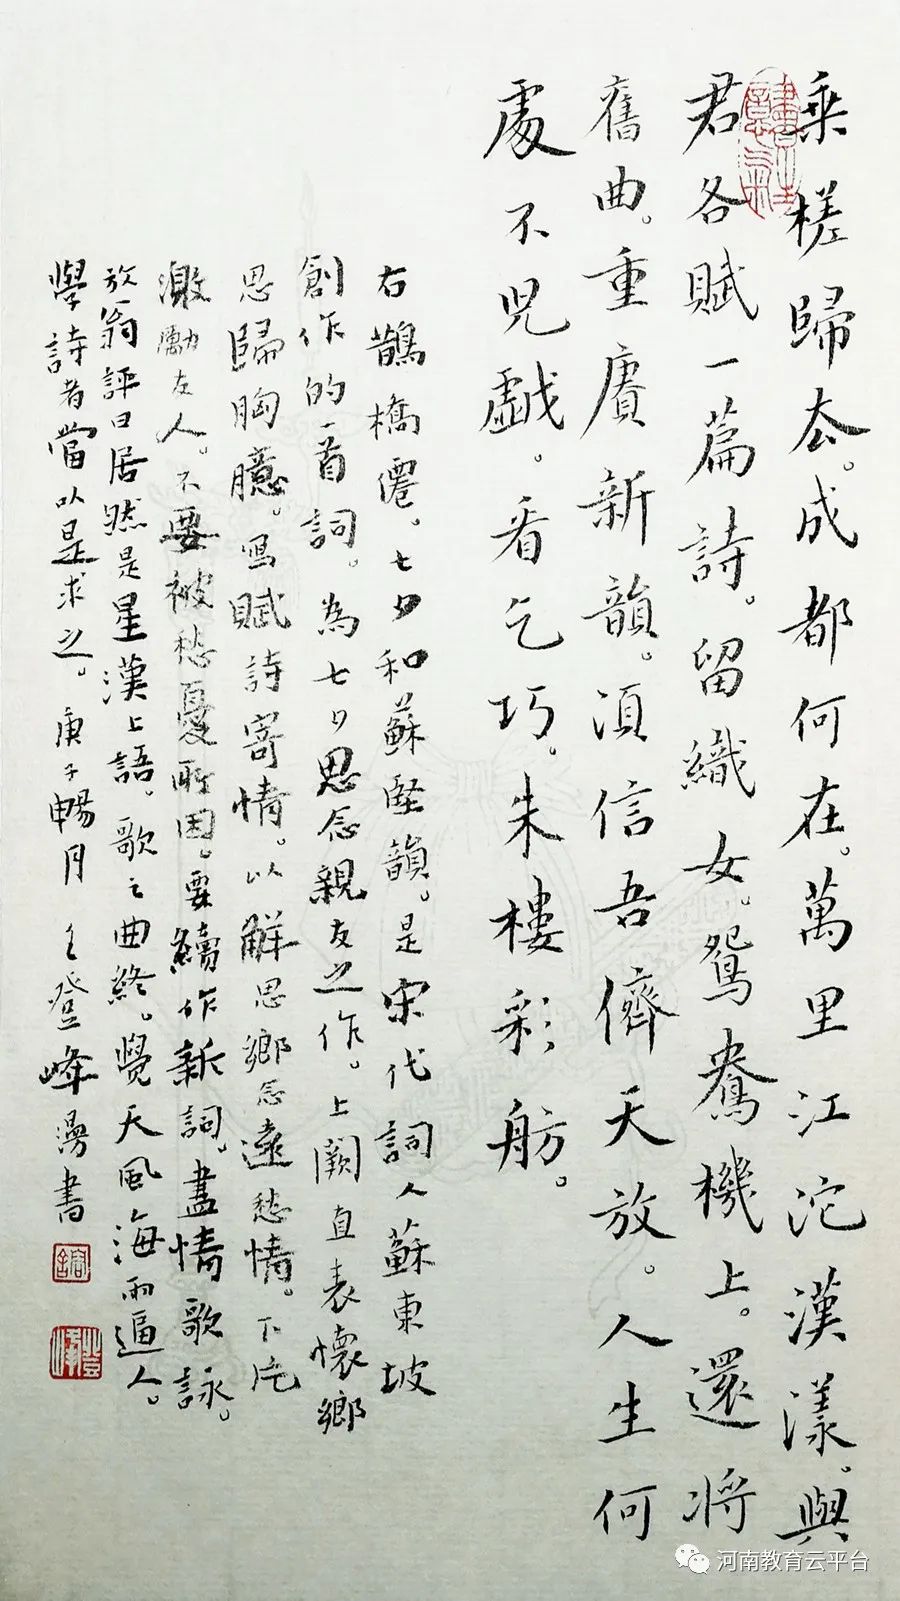 乘槎歸去。成都何在。萬里江沱漢漾。與
君各賦一篇詩。留織女。鴛鴦機上。還將
舊曲。重賡新韻。須信吾儕天放。人生何
處不兒戲。看乞巧。朱樓彩舫。
右鵲橋僊。七夕和蘇堅韻。是宋代詞人蘇東坡
創作的一首詞。為七夕思念親友之作。上闕直表懷鄉
思歸胸臆。寫賦詩寄情。以解思鄉念遠愁情。下片
激勵友人。不要被愁憂所困。要續作新詞。盡情歌詠。
放翁評曰居然是星漢上語。歌之曲終。覺天風海雨逼人。
學詩者當以是求之。庚子暢月 登峰漫書
河南教育云平台